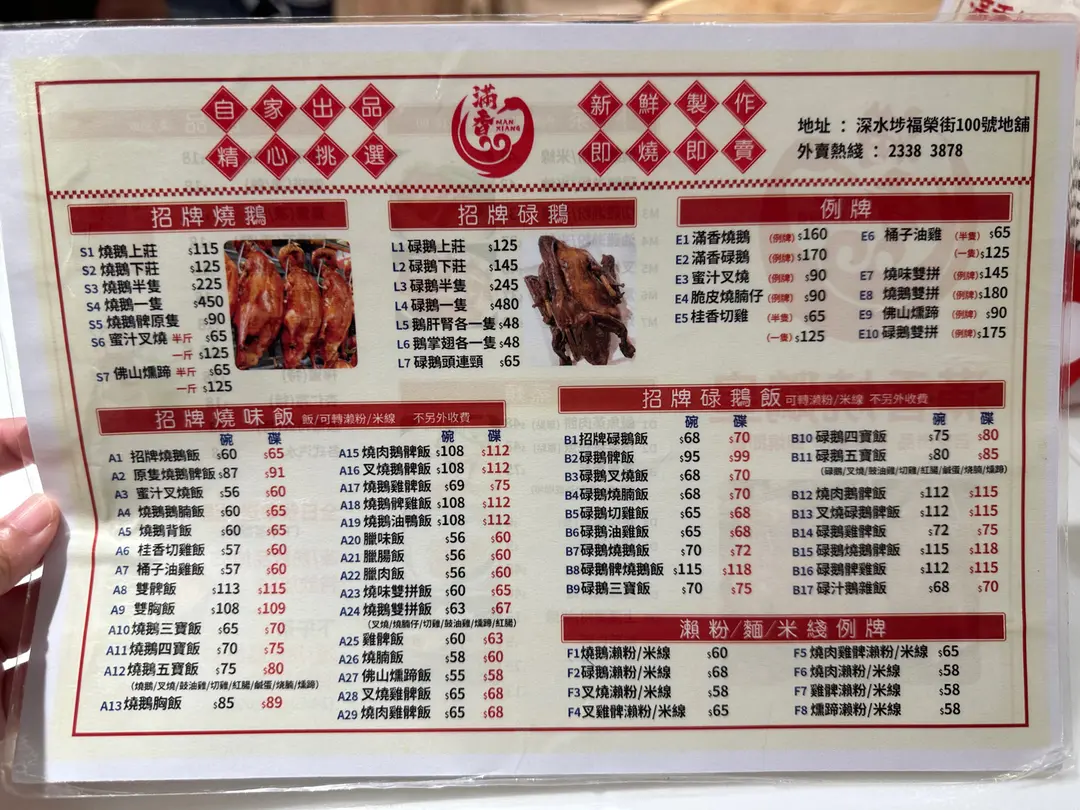 自家出品
精心挑選
滿香
MAN XIANG
新鮮製作
即燒即賣
地址 ： 深水埗福榮街100號地舖
外賣熱綫 ： 2338 3878
招牌燒鵝
S1 燒鵝上莊 $115
S2 燒鵝下莊 $125
S3 燒鵝半隻 $225
S4 燒鵝一隻 $450
S5 燒鵝髀原隻 $90
S6 蜜汁叉燒 半斤 $65
一斤 $125
S7 佛山燻蹄 半斤 $65
一斤 $125
招牌碌鵝
L1 碌鵝上莊 $125
L2 碌鵝下莊 $145
L3 碌鵝半隻 $245
L4 碌鵝一隻 $480
L5 鵝肝腎各一隻 $48
L6 鵝掌翅各一隻 $48
L7 碌鵝頭連頸 $65
例牌
E1 滿香燒鵝 (例牌) $160
E2 滿香碌鵝 (例牌) $170
E3 蜜汁叉燒 (例牌) $90
E4 脆皮燒腩仔 (例牌) $90
E5 桂香切雞 (半隻) $65
(一隻) $125
E6 桶子油雞 (半隻) $65
(一隻) $125
E7 燒味雙拼 (例牌) $145
E8 燒鵝雙拼 (例牌) $180
E9 佛山燻蹄 (例牌) $90
E10 碌鵝雙拼 (例牌) $175
招牌燒味飯 飯/可轉瀨粉/米線 不另外收費
碗 碟
A1 招牌燒鵝飯 $60 $65
A2 原隻燒鵝髀飯 $87 $91
A3 蜜汁叉燒飯 $56 $60
A4 燒鵝鵝腩飯 $60 $65
A5 燒鵝背飯 $60 $65
A6 桂香切雞飯 $57 $60
A7 桶子油雞飯 $57 $60
A8 雙髀飯 $113 $115
A9 雙胸飯 $108 $109
A10 燒鵝三寶飯 $65 $70
A11 燒鵝四寶飯 $70 $75
A12 燒鵝五寶飯 $75 $80
(燒鵝/叉燒/鼓油雞/切雞/紅腸/鹹蛋/燒腩/燻蹄)
A13 燒鵝胸飯 $85 $89
碗 碟
A15 燒肉鵝髀飯 $108 $112
A16 叉燒鵝髀飯 $108 $112
A17 燒鵝雞髀飯 $69 $75
A18 燒鵝髀雞飯 $108 $112
A19 燒鵝油鴨飯 $108 $112
A20 臘味飯 $56 $60
A21 臘腸飯 $56 $60
A22 臘肉飯 $56 $60
A23 燒味雙拼飯 $60 $65
A24 燒鵝雙拼飯 $63 $67
(叉燒/燒腩仔/切雞/鼓油雞/燻蹄/紅腸)
A25 雞髀飯 $60 $63
A26 燒腩飯 $58 $60
A27 佛山燻蹄飯 $55 $58
A28 叉燒雞髀飯 $65 $68
A29 燒肉雞髀飯 $65 $68
招牌碌鵝飯 可轉瀨粉/米線 不另外收費
碗 碟
B1 招牌碌鵝飯 $68 $70
B2 碌鵝髀飯 $95 $99
B3 碌鵝叉燒飯 $68 $70
B4 碌鵝燒腩飯 $68 $70
B5 碌鵝切雞飯 $65 $68
B6 碌鵝油雞飯 $65 $68
B7 碌鵝燒鵝飯 $70 $72
B8 碌鵝髀燒鵝飯 $115 $118
B9 碌鵝三寶飯 $70 $75
碗 碟
B10 碌鵝四寶飯 $75 $80
B11 碌鵝五寶飯 $80 $85
(碌鵝/叉燒/鼓油雞/切雞/紅腸/鹹蛋/燒腩/燻蹄)
B12 燒肉鵝髀飯 $112 $115
B13 叉燒碌鵝髀飯 $112 $115
B14 碌鵝雞髀飯 $72 $75
B15 碌鵝燒鵝髀飯 $115 $118
B16 碌鵝髀雞飯 $112 $115
B17 碌汁鵝雜飯 $68 $70
瀨粉/麵/米綫例牌
F1 燒鵝瀨粉/米線 $60
F2 碌鵝瀨粉/米線 $68
F3 叉燒瀨粉/米線 $58
F4 叉雞髀瀨粉/米線 $65
F5 燒肉雞髀瀨粉/米線 $65
F6 燒肉瀨粉/米線 $58
F7 雞髀瀨粉/米線 $58
F8 燻蹄瀨粉/米線 $58